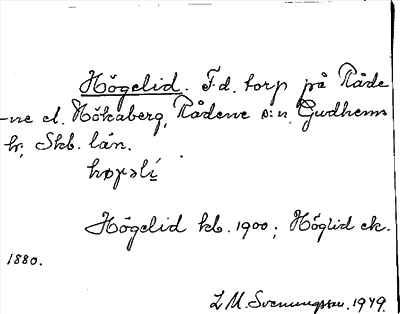 Högelid. F.d. torp på Råde
-ne el. Hökaberg, Rådene s:n, Gudhems
hr, Skb. län.
Högelid kb. 1900; Höglid ek.
1880.
L M. Svenungsson. 1949.